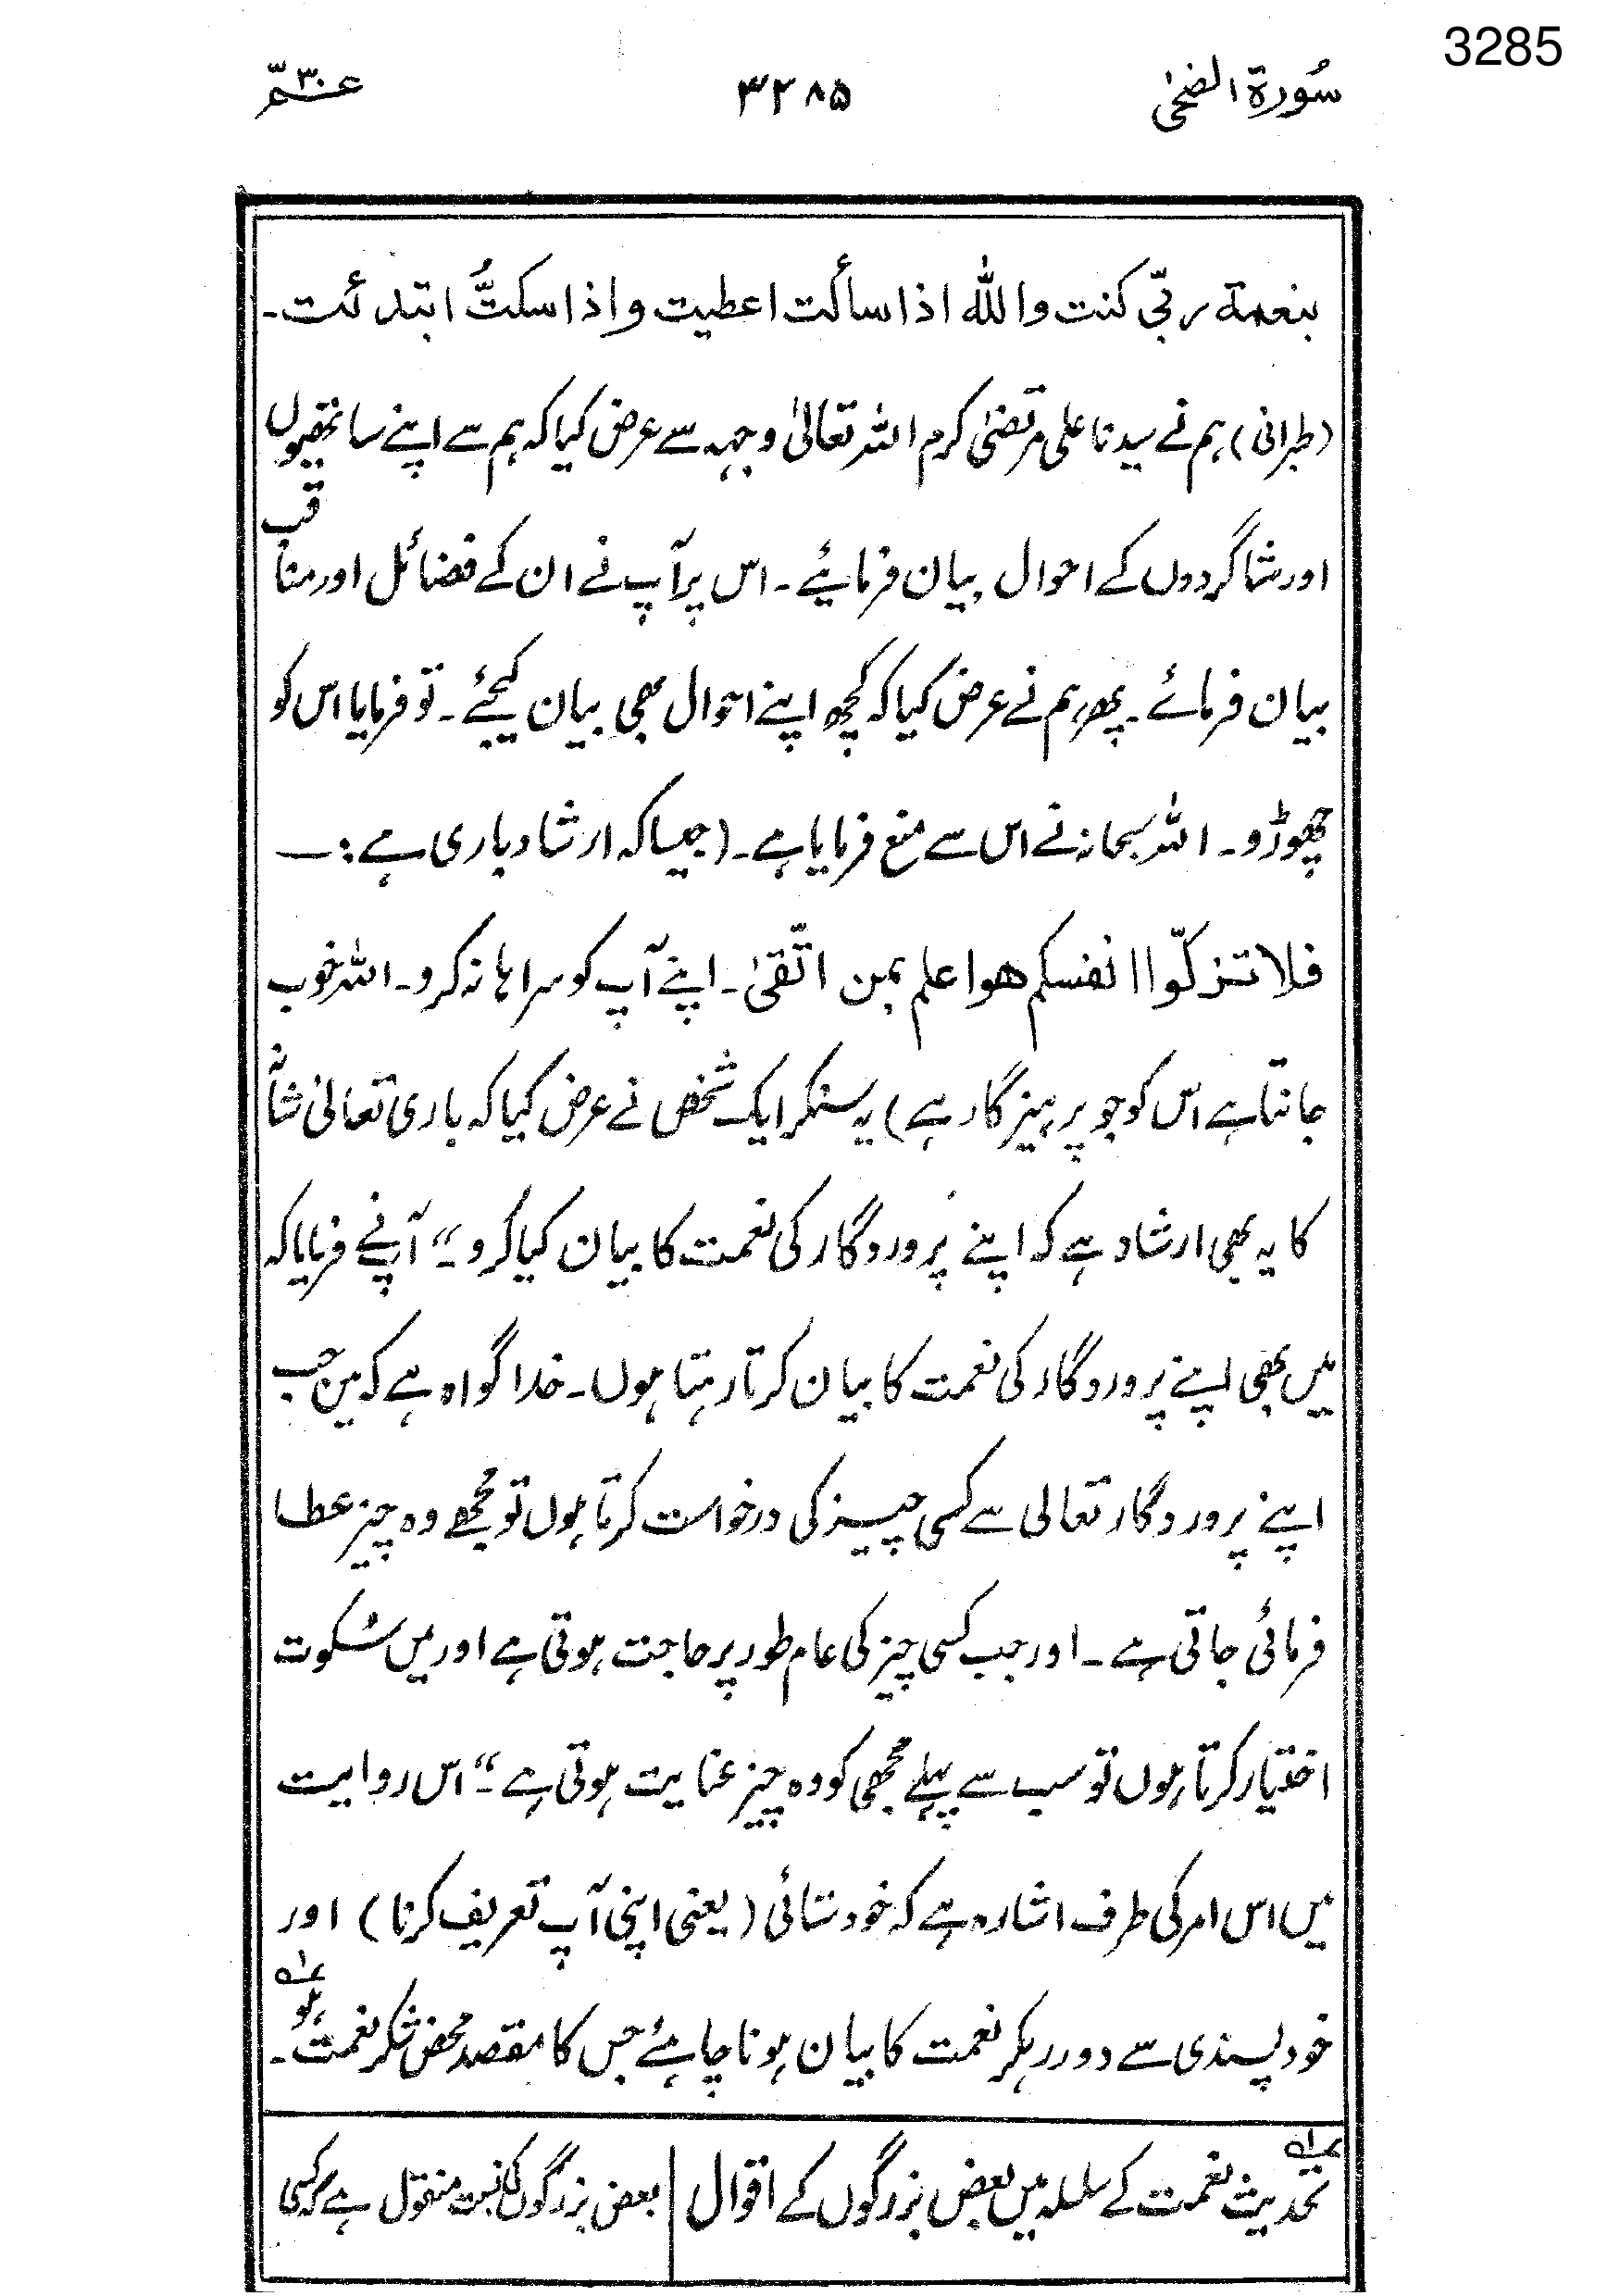 3285
سُورة الضحیٰ ۳۲۸۵ عمّ ۳۰
بنعمة ربّی کنت واللّٰه اذا سألت اعطیت واذا سکتُّ ابتدئت۔
(طبرانی) ہم نے سیدنا علی مرتضیٰ کرم اللہ تعالیٰ وجہہ سے عرض کیا کہ ہم سے اپنے ساتھیوں
اور شاگردوں کے احوال بیان فرمائیے۔ اس پر آپ نے ان کے فضائل اور مناقب
بیان فرمائے۔ پھر ہم نے عرض کیا کہ کچھ اپنے احوال بھی بیان کیجئے۔ تو فرمایا اس کو
چھوڑو۔ اللہ سبحانہ نے اس سے منع فرمایا ہے۔ (جیسا کہ ارشاد باری ہے:۔
فلا تزکّوا انفسکم هو اعلم بمن اتّقیٰ۔ اپنے آپ کو سراہا نہ کرو۔ اللہ خوب
جانتا ہے اس کو جو پرہیزگار ہے) یہ سنکر ایک شخص نے عرض کیا کہ باری تعالیٰ شانہٗ
کا یہ بھی ارشاد ہے کہ اپنے پروردگار کی نعمت کا بیان کیا کرو۔“ آپنے فرمایا کہ
میں بھی اپنے پروردگار کی نعمت کا بیان کرتا رہتا ہوں۔ خدا گواہ ہے کہ میں جب
اپنے پروردگار تعالی سے کسی چیز کی درخواست کرتا ہوں تو مجھے وہ چیز عطا
فرمائی جاتی ہے۔ اور جب کسی چیز کی عام طور پر حاجت ہوتی ہے اور میں سُکوت
اختیار کرتا ہوں تو سب سے پہلے مجھی کو وہ چیز عنایت ہوتی ہے۔“ اس روایت
میں اس امر کی طرف اشارہ ہے کہ خودستائی (یعنی اپنی آپ تعریف کرنا) اور
خود پسندی سے دور رہکر نعمت کا بیان ہونا چاہئے جس کا مقصد محض شکر نعمت ہو ؎۱۔
؎۱ تحدیث نعمت کے سلسلہ میں بعض بزرگوں کے اقوال | بعض بزرگوں کی نسبت منقول ہے کہ کسی